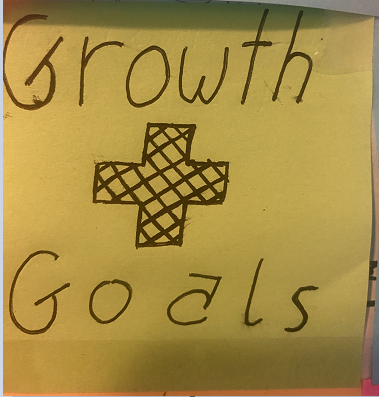 Growth
+
Goals